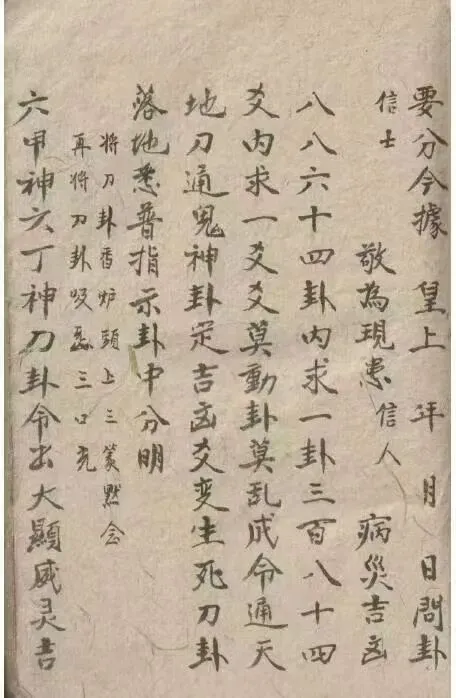 要分今據 皇上 年 月 日問卦
信士 敬為現患 信人 病災吉凶
八八六十四卦內求一卦三百八十四
爻內求一爻爻莫動卦莫乱成令通天
地刀通鬼神卦定吉凶爻变生死刀卦
落地悉普指示卦中分明
将刀卦香炉頭上三篆黙念
再将刀卦吸三口
六甲神六丁神刀卦令出大顯威灵吉